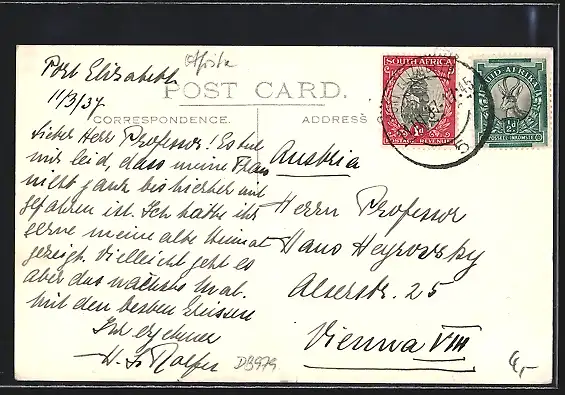 Afrika
Port Elizabeth
11/3/37
POST CARD.
CORRESPONDENCE.
ADDRESS
SOUTH AFRICA
1d
POSTAGE REVENUE
SUID-AFRIKA
½d
POSSEEL INKOMSTE
Lieber Herr Professor! Es tut
mir leid, dass meine Frau
nicht ganz bis hierher mit
gefahren ist. Ich hätte ihr
gerne meine alte Heimat
gezeigt. Vielleicht geht es
aber das nächste Mal.
Mit den besten Grüssen
Ihr ergebener
Austria
Herrn Professor
Hans Heyrovsky
Alserstr. 25
Vienna VIII
D9979
4,-